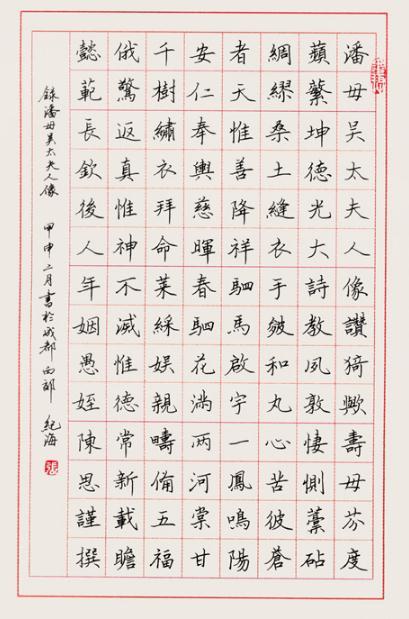 潘母吳太夫人像讚猗歟壽母芬度
蘋蘩坤德光大詩教夙敦悽惻藁砧
綢繆桑土縫衣手皴和丸心苦彼蒼
者天惟善降祥駟馬啟宇一鳳鳴陽
安仁奉輿慈暉春駟花滿兩河棠甘
千樹繡衣拜命萊綵娛親疇備五福
俄驚返真惟神不滅惟德常新載瞻
懿範長欽後人年姻愚姪陳思謹撰
錄潘母吳太夫人像 甲申二月書於成都西郊 紀海